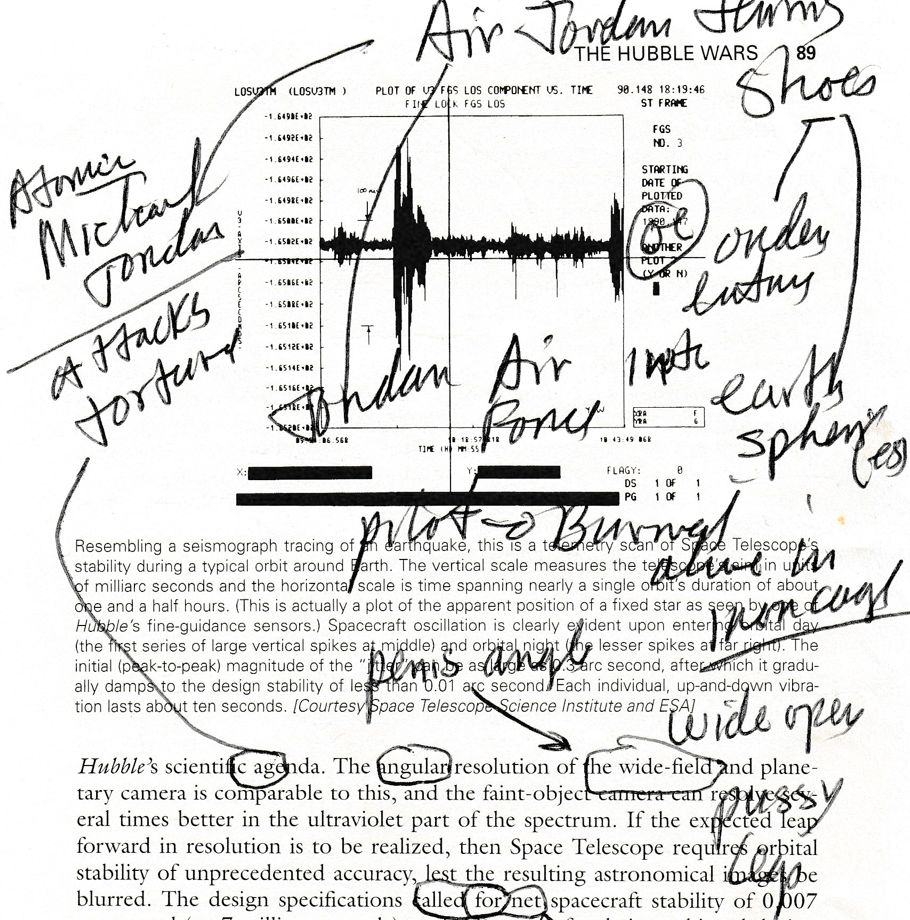 Air Jordan
THE HUBBLE WARS 89
shoes
LOSV3TM (LOSV3TM ) PLOT OF V3 FGS LOS COMPONENT VS. TIME 90.148 18:19:46
FINE LOCK FGS LOS ST FRAME
-1.6490E+02
-1.6492E+02
-1.6494E+02
-1.6496E+02
-1.6498E+02
-1.6500E+02
-1.6502E+02
-1.6504E+02
-1.6506E+02
-1.6508E+02
-1.6510E+02
-1.6512E+02
-1.6514E+02
-1.6516E+02
FGS
NO. 3
STARTING
DATE OF
PLOTTED
DATA:
ANOTHER
PLOT
(Y OR N)
Atomic
Michael
Jordan
attacks
tortured
Jordan
Air
Force
under
into
earth
spher(es)
10 43:49 068
TIME (HH MM:SS)
X: Y: FLAGY: 0
DS 1 OF 1
PG 1 OF 1
pilot → Burned
alive in
Resembling a seismograph tracing of an earthquake, this is a telemetry scan of Space Telescope's
stability during a typical orbit around Earth. The vertical scale measures the telescope's jitter in units
of milliarc seconds and the horizontal scale is time spanning nearly a single orbit's duration of about
one and a half hours. (This is actually a plot of the apparent position of a fixed star as seen by one of
Hubble's fine-guidance sensors.) Spacecraft oscillation is clearly evident upon entering orbital day
(the first series of large vertical spikes at middle) and orbital night (the lesser spikes at far right). The
initial (peak-to-peak) magnitude of the "jitter" can be as large as 0.3 arc second, after which it gradu-
ally damps to the design stability of less than 0.01 arc second. Each individual, up-and-down vibra-
tion lasts about ten seconds. [Courtesy Space Telescope Science Institute and ESA]
penis angle
wide open
pussy
legs
Hubble's scientific agenda. The angular resolution of the wide-field and plane-
tary camera is comparable to this, and the faint-object camera can resolve sev-
eral times better in the ultraviolet part of the spectrum. If the expected leap
forward in resolution is to be realized, then Space Telescope requires orbital
stability of unprecedented accuracy, lest the resulting astronomical images be
blurred. The design specifications called for net spacecraft stability of 0.007